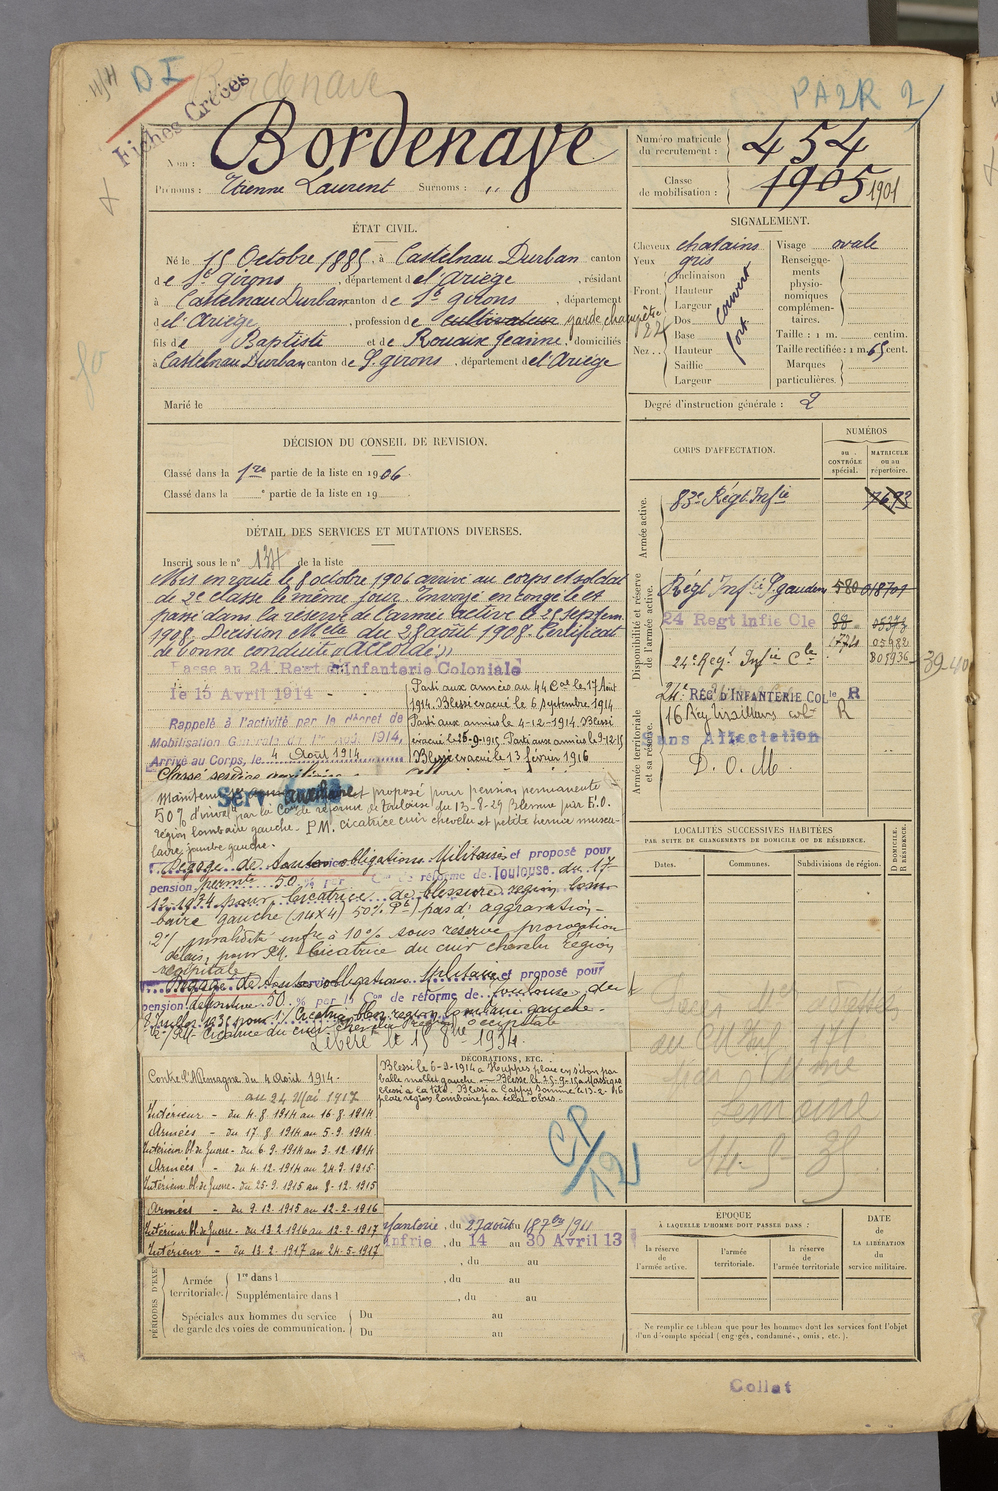 D I
Bordenave
PA2R 2
Fiches Créées
Nom : Bordenave
Prénoms : Etienne Laurent Surnoms : "
Numéro matricule du recrutement : 454
Classe de mobilisation : 1905 1901
ÉTAT CIVIL.
Né le 15 Octobre 1885, à Castelnau Durban canton
de St Girons, département de l'Ariège, résidant
à Castelnau Durban canton de St Girons, département
de l'Ariège, profession de cultivateur garde champêtre
fils de Baptiste et de Rouaix Jeanne, domiciliés
à Castelnau Durban canton de St Girons, département de l'Ariège
Marié le
SIGNALEMENT.
Cheveux chatains
Yeux gris
Front. Inclinaison
Hauteur
Largeur
couvert
Nez. Dos
Base
Hauteur
Saillie
Largeur
fort
Visage ovale
Renseignements physionomiques complémentaires.
Taille : 1 m. centim.
Taille rectifiée : 1 m. 65 cent.
Marques particulières.
Degré d'instruction générale : 2
DÉCISION DU CONSEIL DE REVISION.
Classé dans la 1re partie de la liste en 1906.
Classé dans la e partie de la liste en 19
DÉTAIL DES SERVICES ET MUTATIONS DIVERSES.
Inscrit sous le n° 134 de la liste
Mis en route le 8 octobre 1906 arrivé au corps et soldat
de 2e classe le même jour. Envoyé en congé le et
passé dans la réserve de l'armée active le 25 septem.
1908. Décision Mlle du 28 août 1908. Certificat
de bonne conduite "Accordé"
Passé au 24 Regt d'Infanterie Coloniale
le 15 Avril 1914
Rappelé à l'activité par le décret de
Mobilisation Générale du 1er Août 1914,
Arrivé au Corps, le 4 Août 1914
Parti aux armées au 44 Cal le 17 Août
1914. Blessé évacué le 6 septembre 1914
Parti aux armées le 4-12-1914. Blessé
évacué le 25-9-1915. Parti aux armées le 9-12-15
Blessé évacué le 13 février 1916
Classé service auxiliaire
Serv. auxiliaire
Maintenu et proposé pour pension permanente
50 % d'inval par la Con de réforme de Toulouse du 13-2-29 Blessure par E.O.
région lombaire gauche - P.M. cicatrice cuir chevelu et petite hernie muscu-
laire jambe gauche.
Dégagé de toutes obligations Militaires et proposé pour
pension permte 50 % par la Con de réforme de Toulouse du 17
12-1931 pour cicatrice de blessure région lom-
baire gauche (14x4) 50% Pt pas d'aggravation -
2°/ invalidité infre à 10% sous réserve prorogation
délais, pour P.M. Cicatrice du cuir chevelu région
occipitale
Dégagé de toutes obligations Militaires et proposé pour
pension définitive 50 % par la Con de réforme de Toulouse du
2°/ P.M. Cicatrice du cuir chevelu région occipitale
Libéré le 15 8bre 1934.
CORPS D'AFFECTATION.
NUMÉROS
au CONTRÔLE spécial.
MATRICULE ou au répertoire.
Armée active.
83e Régt. Infie 7693
Disponibilité et réserve de l'armée active.
Régt Infie St gaudens 580 018701
24 Regt Infie Cle 88
1774 05982
24e Regt Infie Cle B05936 39-40
Armée territoriale et sa réserve.
24e REG. D'INFANTERIE COLle R
16 Reg Tirailleurs col R
Sans Affectation
D. O. M.
LOCALITÉS SUCCESSIVES HABITÉES
PAR SUITE DE CHANGEMENTS DE DOMICILE OU DE RÉSIDENCE.
Dates. Communes. Subdivisions de région.
D DOMICILE. R RÉSIDENCE.
14-5-35
Contre l'Allemagne du 4 Août 1914.
au 24 Mai 1917
Intérieur - du 4.8.1914 au 16.8.1914
Armées - du 17.8.1914 au 5-9.1914.
Intérieur bl. de Guerre - du 6.9.1914 au 3.12.1914
Armées - du 4.12.1914 au 24.9.1915
Intérieur bl. de Guerre - du 25-9.1915 au 8-12.1915
Armées - du 9.12.1915 au 12-2-1916
Intérieur bl. de Guerre - du 13.2.1916 au 12-2-1917
Intérieur - du 13.2.1917 au 24-5-1917
DÉCORATIONS, ETC.
Blessé le 6-9-1914 à Huppes plaie en séton par
balle mollet gauche - Blessé le 25-9-15 à Massiges
blessé à la tête. Blessé à Cappy Somme le 13-2-16
plaie région lombaire par éclat obus.
CP/12
Infanterie, du 27 août au 18 7bre 1911
Infrie, du 14 au 30 Avril 13
, du au
PÉRIODES D'EXE
Armée territoriale. 1re dans l , du au
Supplémentaire dans l , du au
Spéciales aux hommes du service de garde des voies de communication. Du au
Du au
ÉPOQUE
À LAQUELLE L'HOMME DOIT PASSER DANS :
la réserve de l'armée active.
l'armée territoriale.
la réserve de l'armée territoriale
DATE de LA LIBÉRATION du service militaire.
Ne remplir ce tableau que pour les hommes dont les services font l'objet
d'un décompte spécial (engagés, condamnés, omis, etc.).
Collat